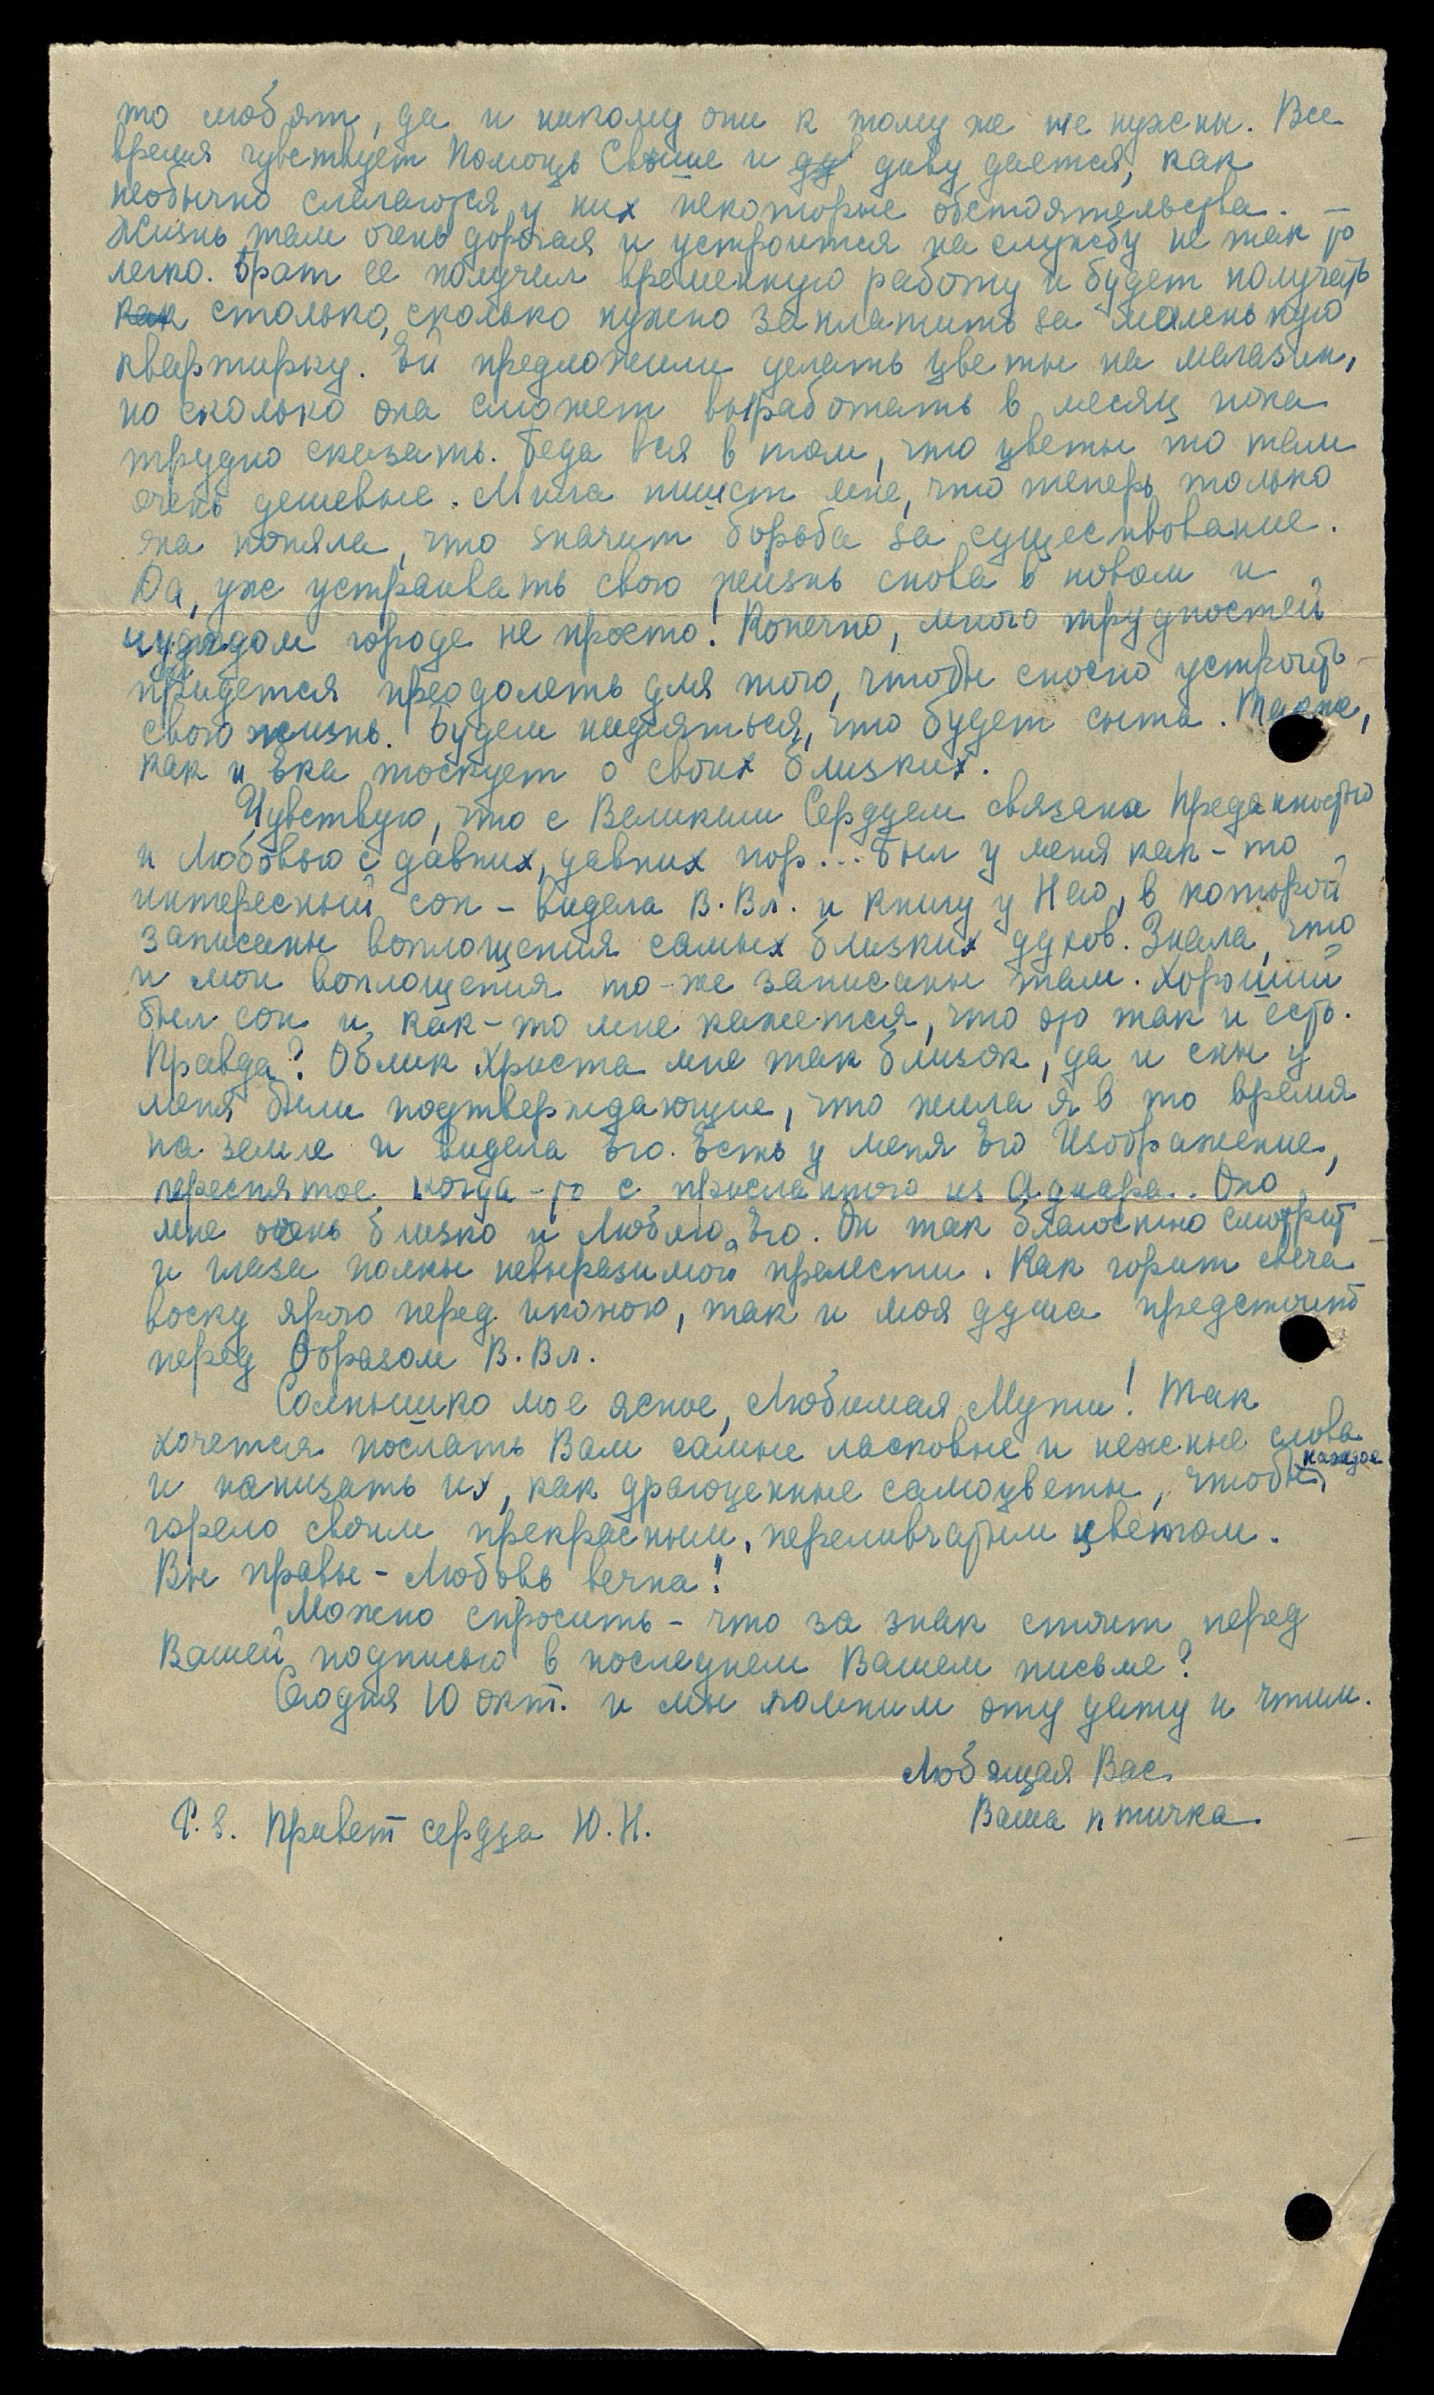 то любят, да и никому они к тому же не нужны. Все
время чувствует Помощь Свыше и диву дается, как
необычно слагаются у них некоторые обстоятельства. –
Жизнь там очень дорогая и устроится на службу не так то
легко. Брат ее получил временную работу и будет получать
как столько, сколько нужно заплатить за маленькую
квартирку. Ей предложили делать цветы на магазин,
но сколько она сможет выработать в месяц пока
трудно сказать. Беда вся в том, что цветы то там
очень дешевые. Мима пишет мне, что теперь только
она поняла, что значит борьба за существование.
Да, уж устраивать свою жизнь снова в новом и
чуждом городе не просто! Конечно, много трудностей
придется преодолеть для того, чтобы сносно устроить
свою жизнь. Будем надеяться, что будет сыта. Также,
как и Ека тоскует о своих близких.
Чувствую, что с Великим Сердцем связана Преданностью
и Любовью с давних, давних пор... Был у меня как-то
интересный сон – видела В.Вл. и книгу у Него, в которой
записаны воплощения самых близких духов. Знала, что
и мои воплощения то-же записаны там. Хороший
был сон и, как-то мне кажется, что это так и есть.
Правда? Облик Христа мне так близок, да и сны у
меня были подтверждающие, что жила я в то время
на земле и видела Его. Есть у меня Его Изображение,
переснятое когда-то с присланного из Адиара. Оно
мне очень близко и Люблю Его. Он так благостно смотрит
и глаза полны невыразимой прелести. Как горит свеча
воску ярого перед иконою, так и моя душа предстоит
перед Образом В.Вл.
Солнышко мое ясное, Любимая Мути! Так
хочется послать Вам самые ласковые и нежные слова
и нанизать их, как драгоценные самоцветы, чтобы каждое
горело своим прекрасным, переливчатым цветом.
Вы правы – Любовь вечна!
Можно спросить – что за знак стоит перед
Вашей подписью в последнем Вашем письме?
Сегодня 10 окт. и мы помним эту дату и чтим.
Любящая Вас
Ваша птичка
P.S. Привет сердца Ю.Н.